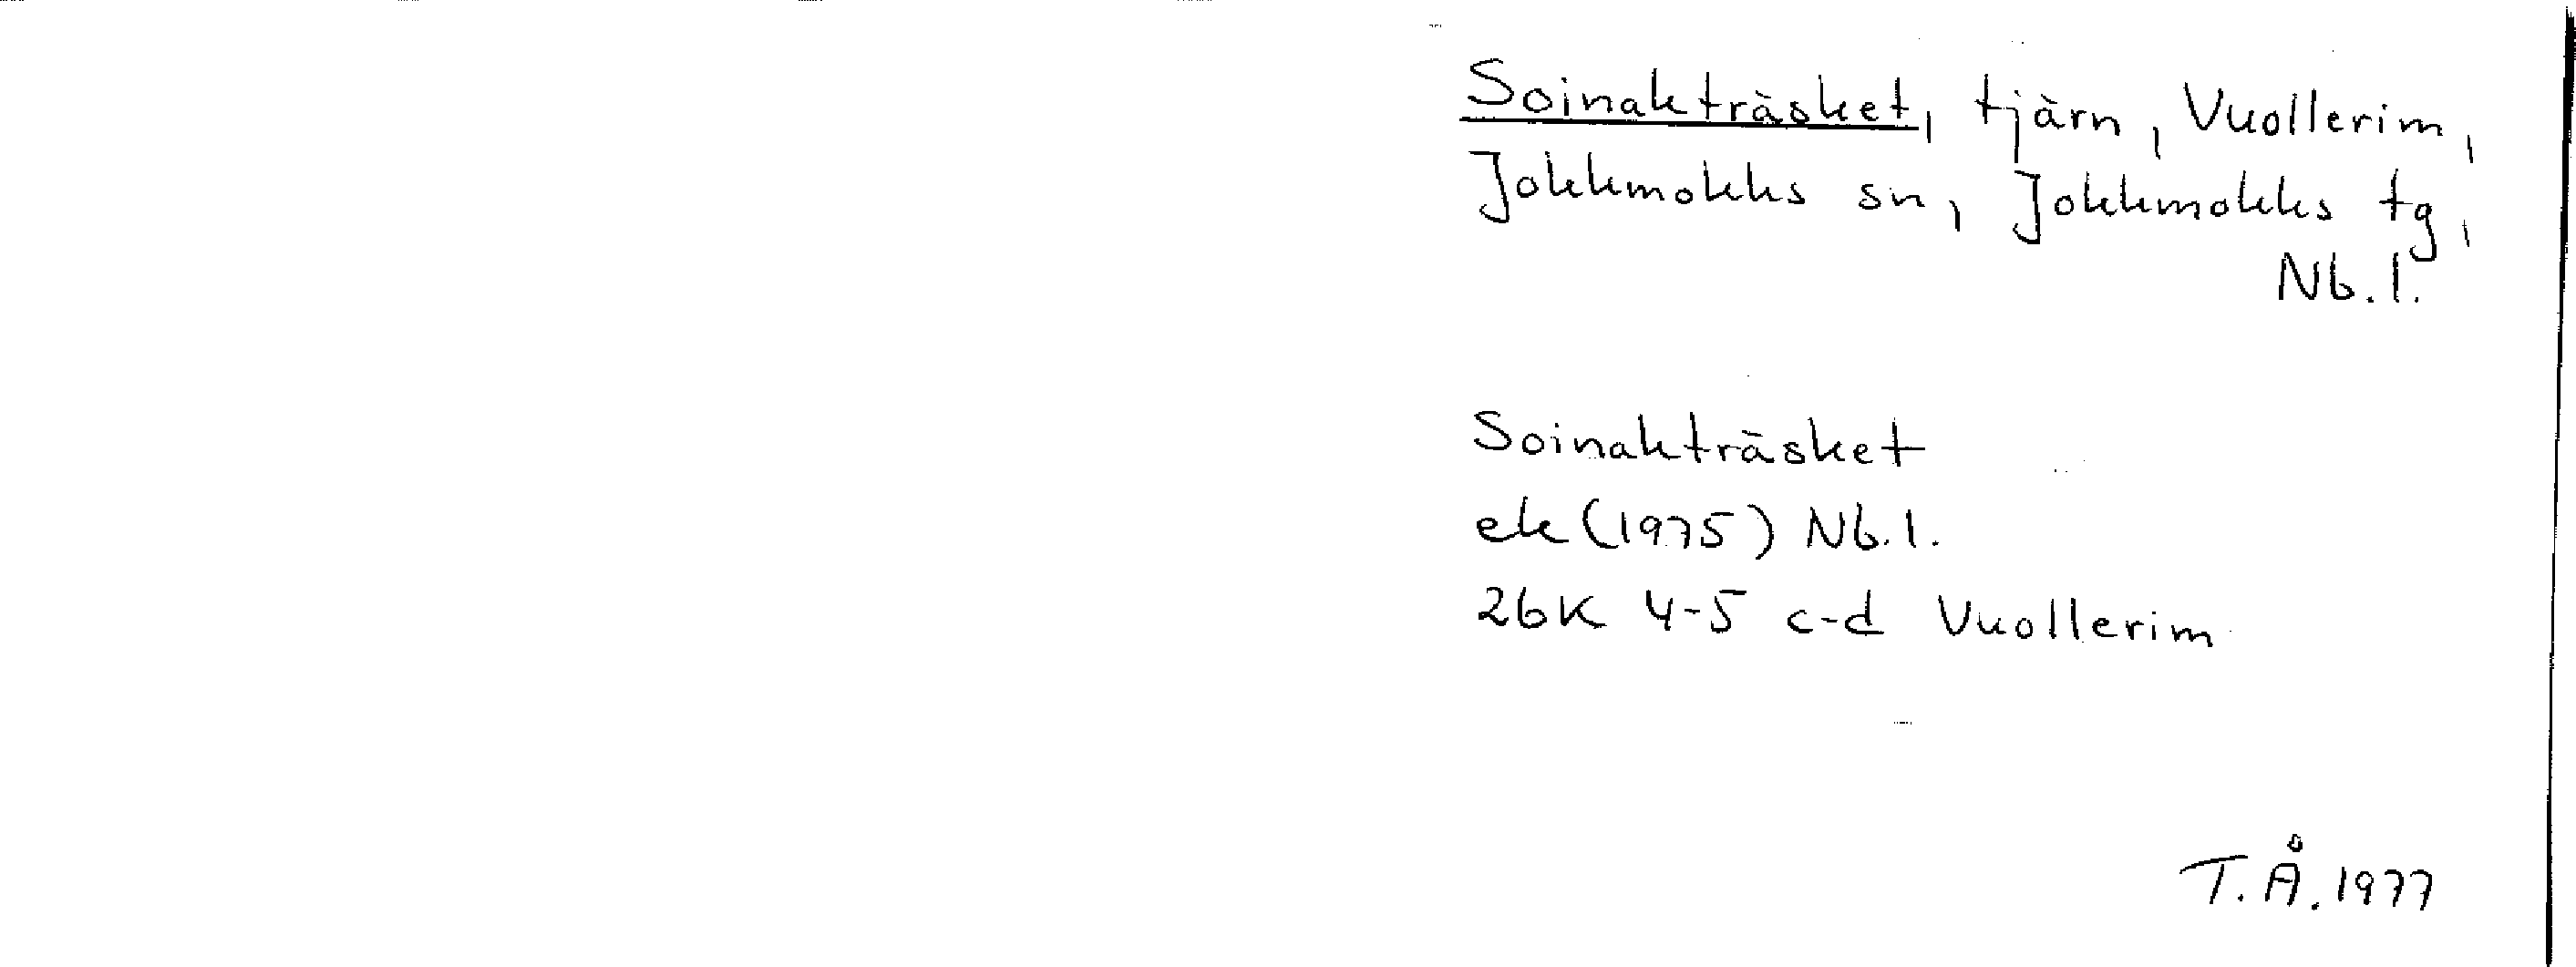 Soinakträsket, tjärn, Vuollerim,
Jokkmokks sn, Jokkmokks tg,
Nb.l.
Soinakträsket
ek (1975) Nb.l.
26K 4-5 c-d Vuollerim
T.Å.1977